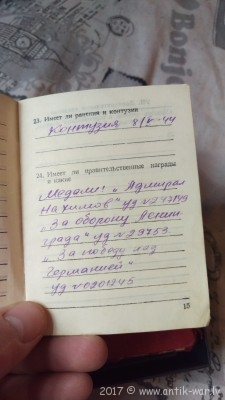 23. Имеет ли ранения и контузии
Контузия 8/V-44
24. Имеет ли правительственные награды
и какие
Медали: „Адмирал
Нахимов“ уд №
„За оборону Ленин-
града“ уд №29753
„За победу над
Германией“
уд №0201245
13
2017 © www.antik-war.lv
BONJOUR